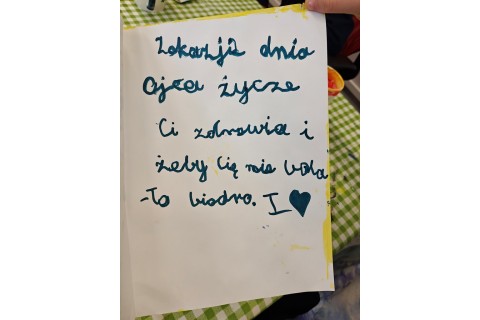 Zokazji dnia
Ojca życze
Ci zdrowia i
żeby Cię nie bola
-ło biodro. I ♥